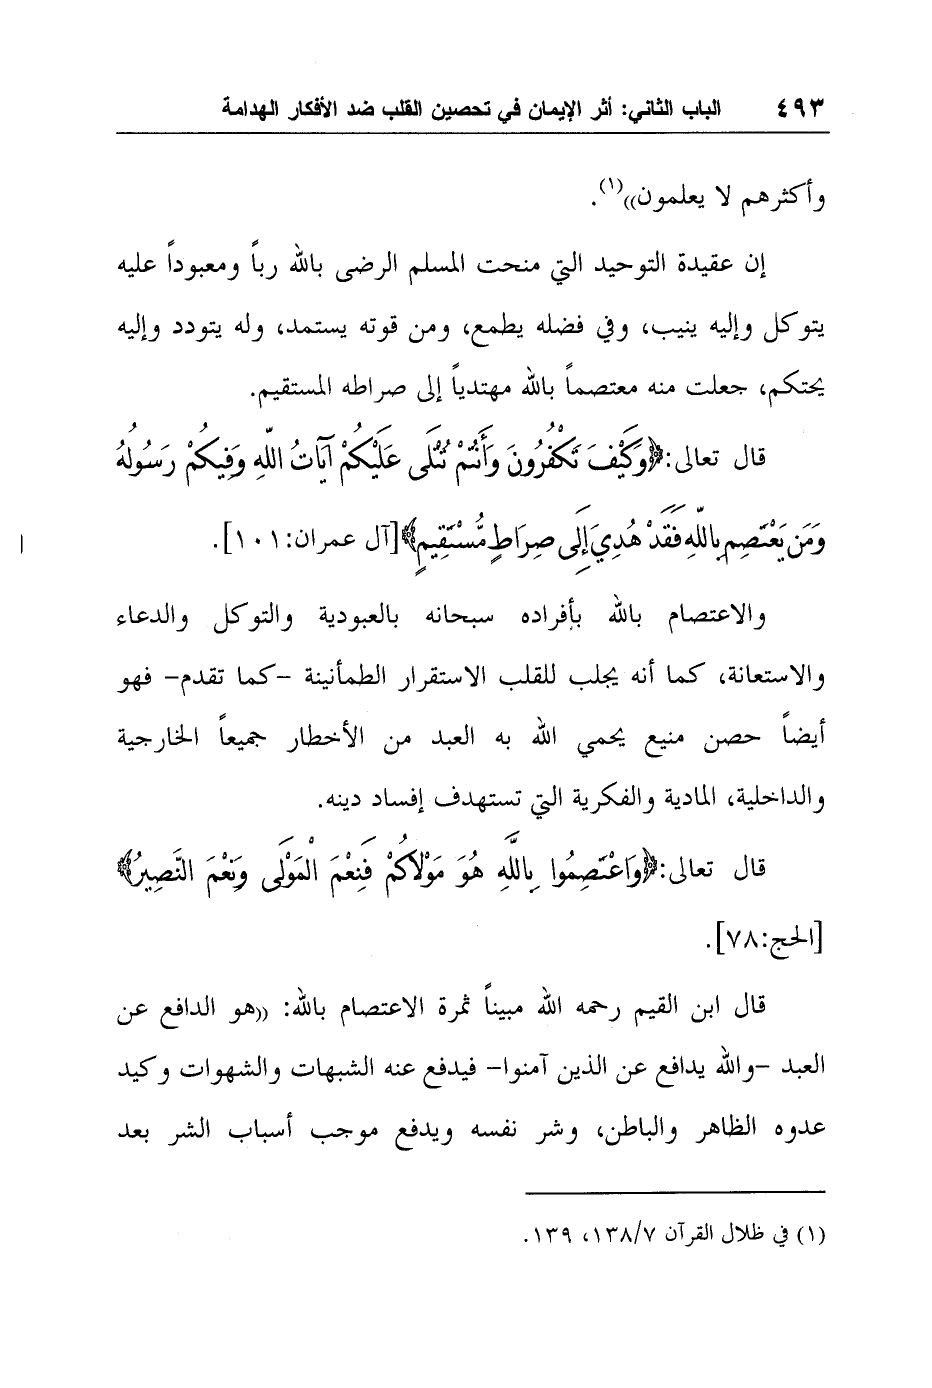 ٤٩٣ الباب الثاني: أثر الإيمان في تحصين القلب ضد الأفكار الهدامة
وأكثرهم لا يعلمون))(١).
إن عقيدة التوحيد التي منحت المسلم الرضى بالله رباً ومعبوداً عليه
يتوكل وإليه ينيب، وفي فضله يطمع، ومن قوته يستمد، وله يتودد وإليه
يحتكم، جعلت منه معتصماً بالله مهتدياً إلى صراطه المستقيم.
قال تعالى:﴿وَكَيْفَ تَكْفُرُونَ وَأَنتُمْ تُتْلَى عَلَيْكُمْ آيَاتُ اللَّهِ وَفِيكُمْ رَسُولُهُ
وَمَن يَعْتَصِم بِاللَّهِ فَقَدْ هُدِيَ إِلَى صِرَاطٍ مُّسْتَقِيمٍ﴾[آل عمران:١٠١].
والاعتصام بالله بأفراده سبحانه بالعبودية والتوكل والدعاء
والاستعانة، كما أنه يجلب للقلب الاستقرار الطمأنينة -كما تقدم- فهو
أيضاً حصن منيع يحمي الله به العبد من الأخطار جميعاً الخارجية
والداخلية، المادية والفكرية التي تستهدف إفساد دينه.
قال تعالى:﴿وَاعْتَصِمُوا بِاللَّهِ هُوَ مَوْلَاكُمْ فَنِعْمَ الْمَوْلَى وَنِعْمَ النَّصِيرُ﴾
[الحج:٧٨].
قال ابن القيم رحمه الله مبيناً ثمرة الاعتصام بالله: ((هو الدافع عن
العبد -والله يدافع عن الذين آمنوا- فيدفع عنه الشبهات والشهوات وكيد
عدوه الظاهر والباطن، وشر نفسه ويدفع موجب أسباب الشر بعد
(١) في ظلال القرآن ١٣٨/٧، ١٣٩.